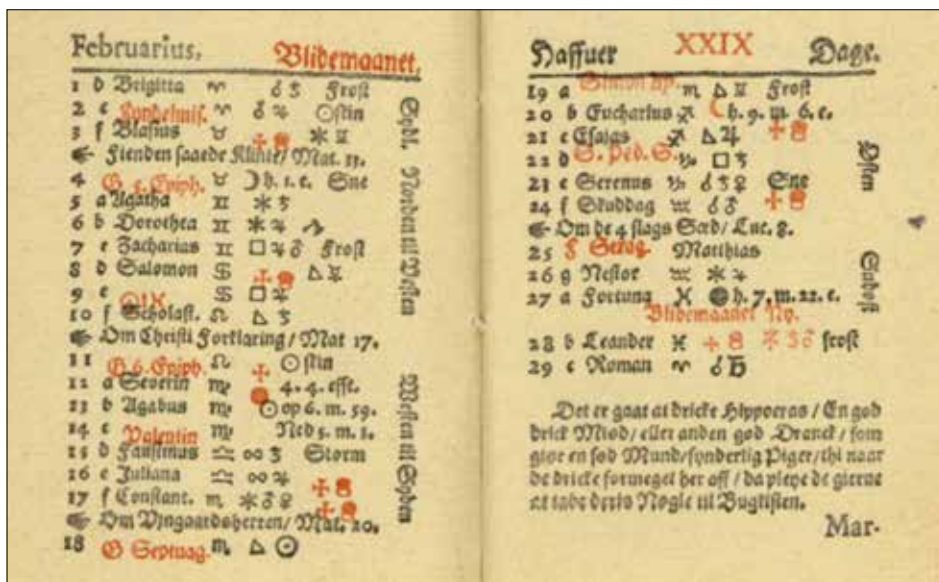 Februarius, Blidemaanet,
1 d Brigitta ♈ ☌ ♄ Frost
2 e Kyndelmis. ♈ ☌ ♃ ☉ skin
3 f Blasius ♉ ⚹ ☿
Fienden saaede Klinte / Mat. 13.
4 G 5. Epiph. ♉ ☽ h. 1. e. Sne
5 a Agatha ♊ ⚹
6 b Dorothea ♊ ⚹ ♃
7 c Zacharias ♊ □ ♃ ♂ Frost
8 d Salomon ♋ △ ☿
9 e ♋ □ ♃
10 f Scholast. ♌ △
Om Christi Forklaring / Mat 17.
11 G 6. Epiph. ♌ ☉ skin
12 a Severin ♍ 4. 4. efft.
13 b Agabus ♍ ☉ op 6. m. 59.
14 c Valentin ♍ Ned 5. m. 1.
15 d Faustinus ♎ Storm
16 e Juliana ♎ ♃
17 f Constant. ♏ ⚹ ♂ ♀
Om Vjngaardsherren / Mat. 20.
18 G Septuag. ♏ △ ☉
Sydl. Norden til Vesten
Westen til Synden
Haffuer XXIX Dage.
19 a Simon ♏ △ ☿ Frost
20 b Eucharius ♐ ☾ h. 9. m. 6. e.
21 c Esajas ♐ △ ♃
22 d S. Ped. S. ♑ □
23 e Serenus ♑ ☌ ♀ Sne
24 f Skuddag ♒ ☌ ♂
Om de 4 slags Sæd / Luc. 8.
25 Matthias
26 g Nestor ♒ ⚹ ♃
27 a Fortuna ♓ h. 7. m. 22. e.
Blidemaanet Ny.
28 b Leander ♓ frost
29 c Roman ♈ ☌
Østen
Det er gaat at dricke Hippocras / En god
drick Miød / eller anden god Dranck / som
giør en sød Mund / synderlig Piger / thi naar
de dricke formeget her aff / da pleye de gierne
at tabe deris Nøgle til Buglisten.
Mar-